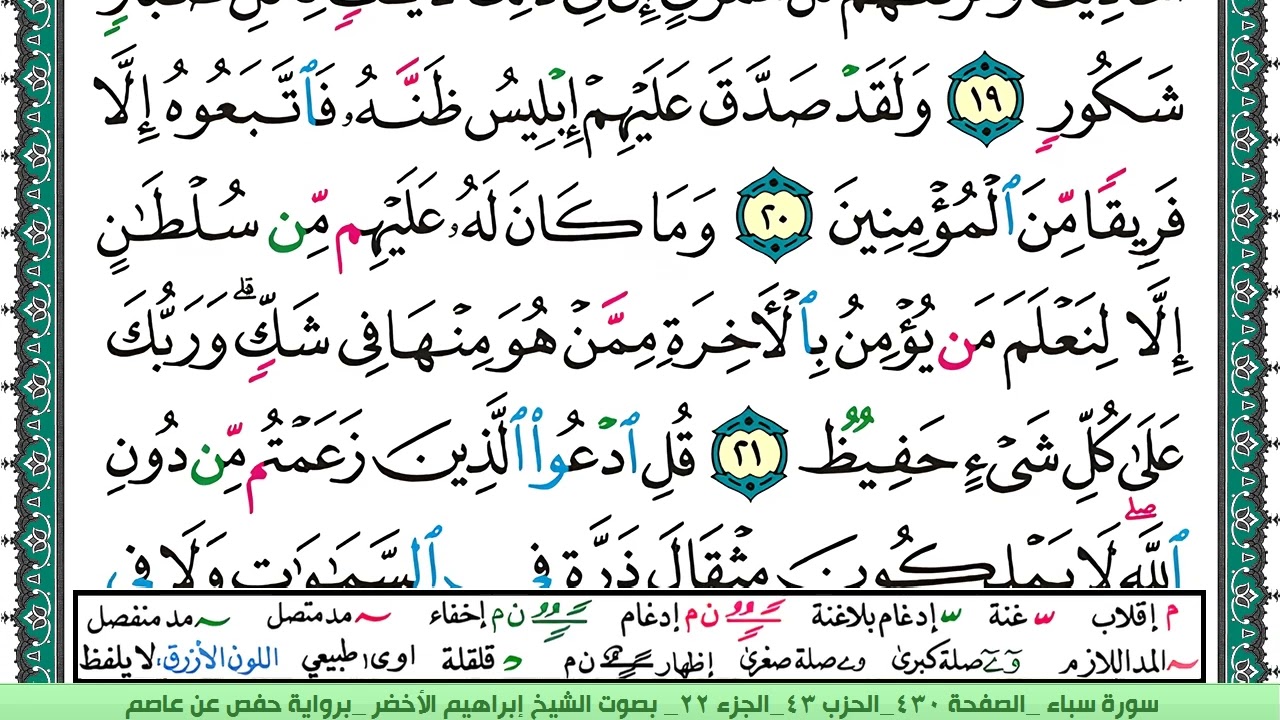 شَكُورٍ ١٩ وَلَقَدْ صَدَّقَ عَلَيْهِمْ إِبْلِيسُ ظَنَّهُۥ فَٱتَّبَعُوهُ إِلَّا
فَرِيقًا مِّنَ ٱلْمُؤْمِنِينَ ٢٠ وَمَا كَانَ لَهُۥ عَلَيْهِم مِّن سُلْطَـٰنٍ
إِلَّا لِنَعْلَمَ مَن يُؤْمِنُ بِٱلْأَخِرَةِ مِمَّنْ هُوَ مِنْهَا فِى شَكٍّ ۗ وَرَبُّكَ
عَلَىٰ كُلِّ شَىْءٍ حَفِيظٌ ٢١ قُلِ ٱدْعُوا۟ ٱلَّذِينَ زَعَمْتُم مِّن دُونِ
ٱللَّهِ ۖ لَا يَمْلِكُونَ مِثْقَالَ ذَرَّةٍ فِى ٱلسَّمَـٰوَٰتِ وَلَا فِى
م إقلاب ـّ غنة ـّ إدغام بلاغنة ن م إدغام ن م إخفاء ~ مد متصل ~ مد منفصل
~ المد اللازم صلة كبرى صلة صغرى إظهار ن م قلقلة اوى طبيعي اللون الأزرق: لا يلفظ
سورة سباء _الصفحة ٤٣٠_الحزب ٤٣_الجزء ٢٢_ بصوت الشيخ إبراهيم الأخضر _برواية حفص عن عاصم